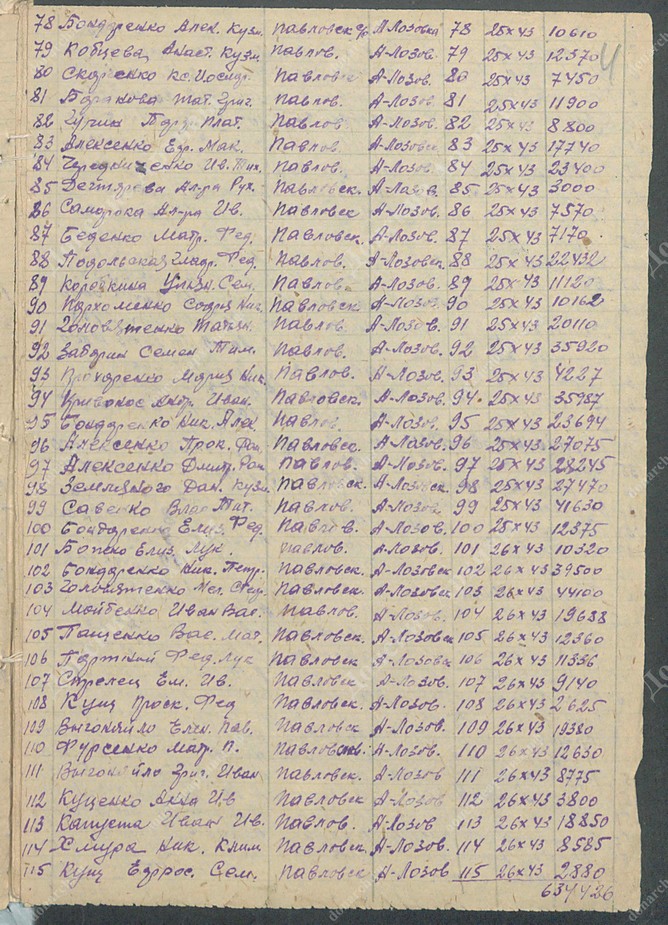 78 Бондаренко Алек. Кузм. Павловск с/с М Лозовка 78 25×43 10610
79 Кобцева Анаст. Кузм. Павлов. А-Лозов. 79 25×43 12370 4
80 Скаренко Павловск А-Лозов. 80 25×43 7450
81 Баранова Тат. Григ. Павлов. А-Лозов 81 25×43 11900
82 Плат. Павлов. А-Лозов. 82 25×43 8800
83 Алексенко Мак. Павлов А-Лозовск 83 25×43 17740
84 Чередниченко Ив. Тих. Павлов. А-Лозов. 84 25×43 23400
85 Дегтярева Ал-ра Павловск. А-Лозов. 85 25×43 3000
86 Ал-ра Ив. Павловск А-Лозов. 86 25×43 7570
87 Беденко Матр. Фед. Павловск. А-Лозов. 87 25×43 7170
88 Подольская Фед. Павлов. А-Лозовск 88 25×43 22432
89 Коровкина Ульян. Сем. Павлов А-Лозов. 89 25×43 11120
90 Пархоменко Софья Ник. Павловск А-Лозов 90 25×43 10162
91 Головятенко Павлов. А-Лозов. 91 25×43 20110
92 Забарин Семен Тим. Павлов. А-Лозов. 92 25×43 35920
93 Мария Ник. Павлов. А-Лозов. 93 25×43 4227
94 Кривонос Иван. Павловск. А-Лозов. 94. 25×43 35987
95 Бондаренко Ник. Алек. Павлов А-Лозов. 95 25×43 23694
96 Алексенко Прок. Павловск. А-Лозов. 96 25×43 27075
97 Алексенко Дмит. Павлов. А-Лозов. 97 25×43 28245
98 Земляного Дан. Кузм. Павловск А-Лозовск 98 25×43 27470
99 Савенко Влас Тит. Павлов. А-Лозов. 99 25×43 41630
100 Бондаренко Елиз. Фед. Павлов. А-Лозов. 100 25×43 12375
101 Божко Елиз. Лук. Павлов. А-Лозов. 101 26×43 10320
102 Бондаренко Ник. Петр. Павловск. А-Лозовск 102 26×43 39500
103 Головятенко Павловск А-Лозовск 103 26×43 44100
104 Мойбенко Иван Вас. Павлов. А-Лозов. 104 26×43 19688
105 Пащенко Вас. Мат. Павловск. А-Лозовск 105 26×43 12360
106 Портной Фед. Лук Павловск А-Лозовск 106 26×43 11356
107 Стрелец Ем. Ив. Павловск А-Лозов. 107 26×43 9140
108 Кущ Проск. Фед Павловск. А-Лозов. 108 26×43 2625
109 Выгоняйло Елен. Пав. Павловск А-Лозов. 109 26×43 19380
110 Фурсенко Матр. П. Павловск. А-Лозов. 110 26×43 12630
111 Выгоняйло Григ. Иван Павловск. А-Лозов 111 26×43 8775
112 Куценко Анна Ив Павловск А-Лозов 112 26×43 3800
113 Капуста Иван Ив. Павлов. А-Лозов 113 26×43 18850
114 Хмура Ник. Клим Павловск. А-Лозов. 114 26×43 8585
115 Кущ Ефрос. Сем. Павловск А-Лозов 115 26×43 2880
634426